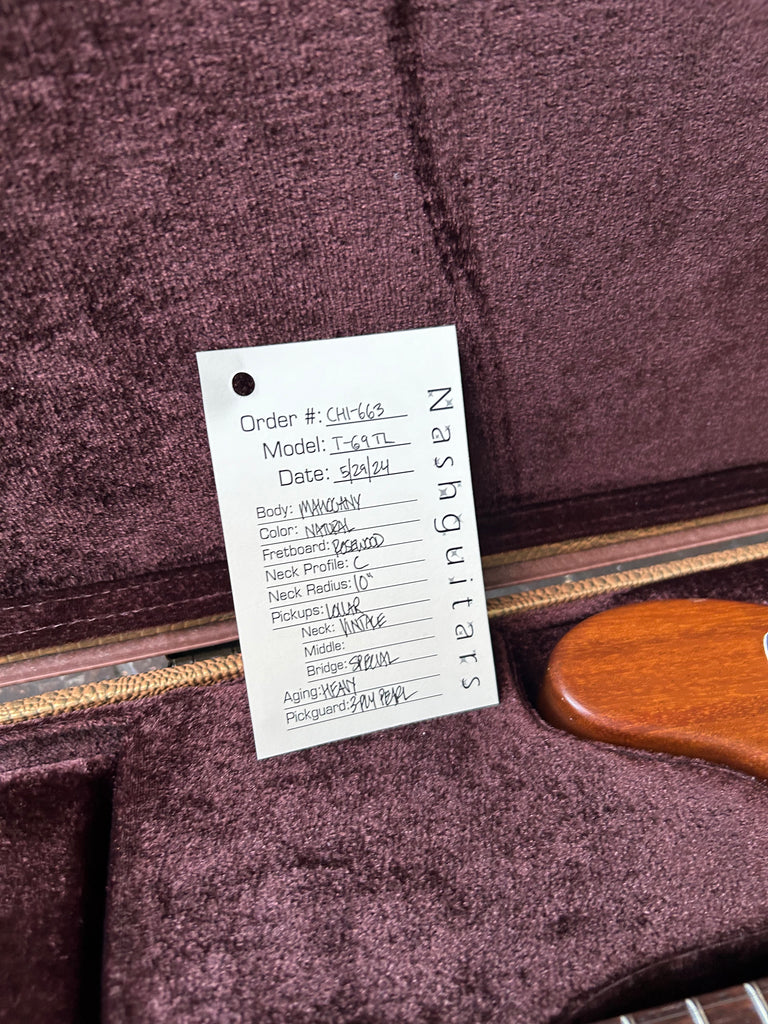 Order #: CHI-663
Model: T-69 TL
Date: 5/29/24
Body: MAHOGANY
Color: NATURAL
Fretboard: ROSEWOOD
Neck Profile: C
Neck Radius: 10"
Pickups: LOLLAR
Neck: VINTAGE
Middle:
Bridge: SPECIAL
Aging: HEAVY
Pickguard: 3 PLY PEARL
Nashguitars